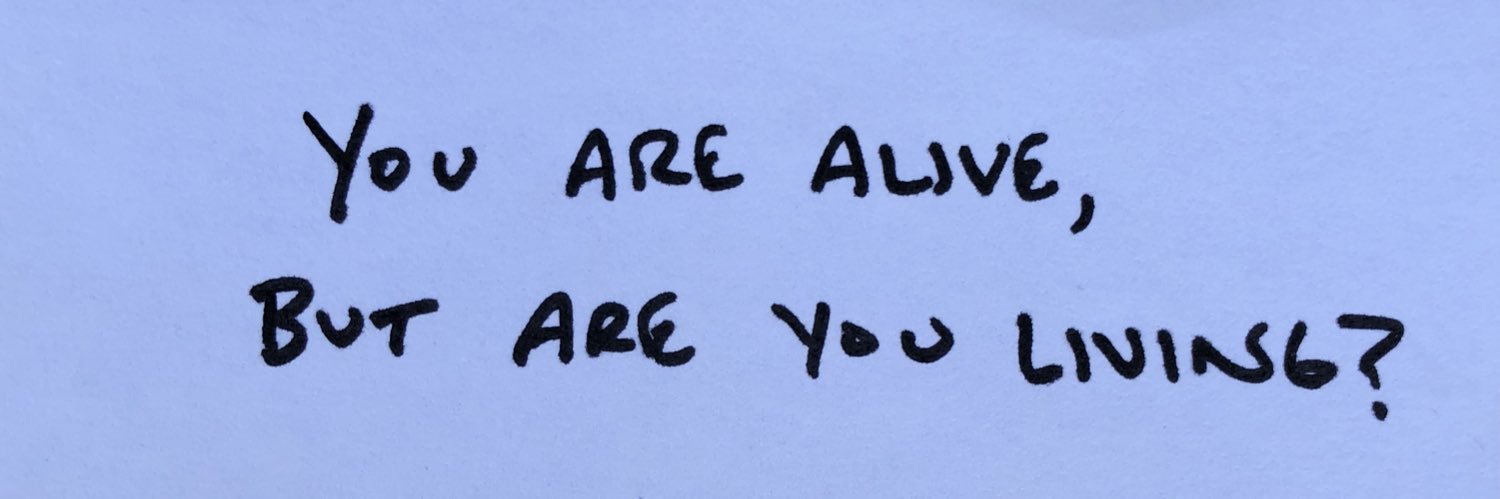 YOU ARE ALIVE,
BUT ARE YOU LIVING?